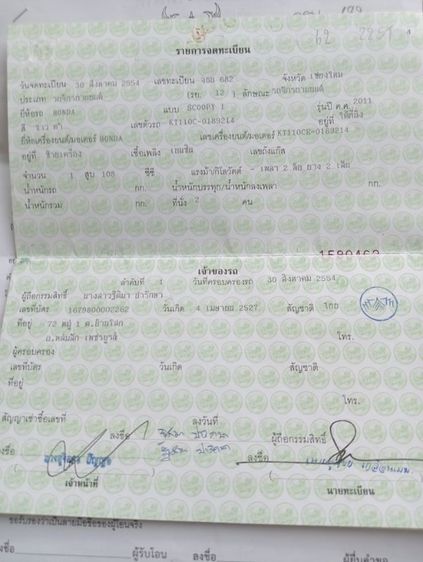 รายการจดทะเบียน
วันจดทะเบียน 30 สิงหาคม 2554 เลขทะเบียน 682 จังหวัด เชียงใหม่
ประเภท รถจักรยานยนต์ (รย. 12 ) ลักษณะ รถจักรยานยนต์
ยี่ห้อรถ HONDA แบบ SCOOPY I รุ่นปี ค.ศ. 2011
สี เลขตัวรถ KT110C-0189214 อยู่ที่
ยี่ห้อเครื่องยนต์/มอเตอร์ HONDA เลขเครื่องยนต์/มอเตอร์ KT110CE-0189214
อยู่ที่ ข้างเครื่อง เชื้อเพลิง เบนซิน เลขถังแก๊ส
จำนวน 1 สูบ 108 ซีซี แรงม้า/กิโลวัตต์ - เพลา 2 ล้อ ยาง 2 เส้น
น้ำหนักรถ กก. น้ำหนักบรรทุก/น้ำหนักลงเพลา กก.
น้ำหนักรวม กก. ที่นั่ง 2 คน
1580462
เจ้าของรถ
ลำดับที่ 1 วันที่ครอบครองรถ 30 สิงหาคม 2554
ผู้ถือกรรมสิทธิ์
เลขที่บัตร 1679800002262 วันเกิด 4 เมษายน 2527 สัญชาติ ไทย
ที่อยู่ 72 หมู่ 1 ต.บ้านโสก
อ.หล่มสัก เพชรบูรณ์ โทร.
ผู้ครอบครอง
เลขที่บัตร วันเกิด สัญชาติ
ที่อยู่
โทร.
สัญญาเช่าซื้อเลขที่ ลงวันที่
ลงชื่อ ผู้ถือกรรมสิทธิ์
ลงชื่อ
เจ้าหน้าที่ นายทะเบียน
ลงชื่อ ผู้รับโอน ลงชื่อ